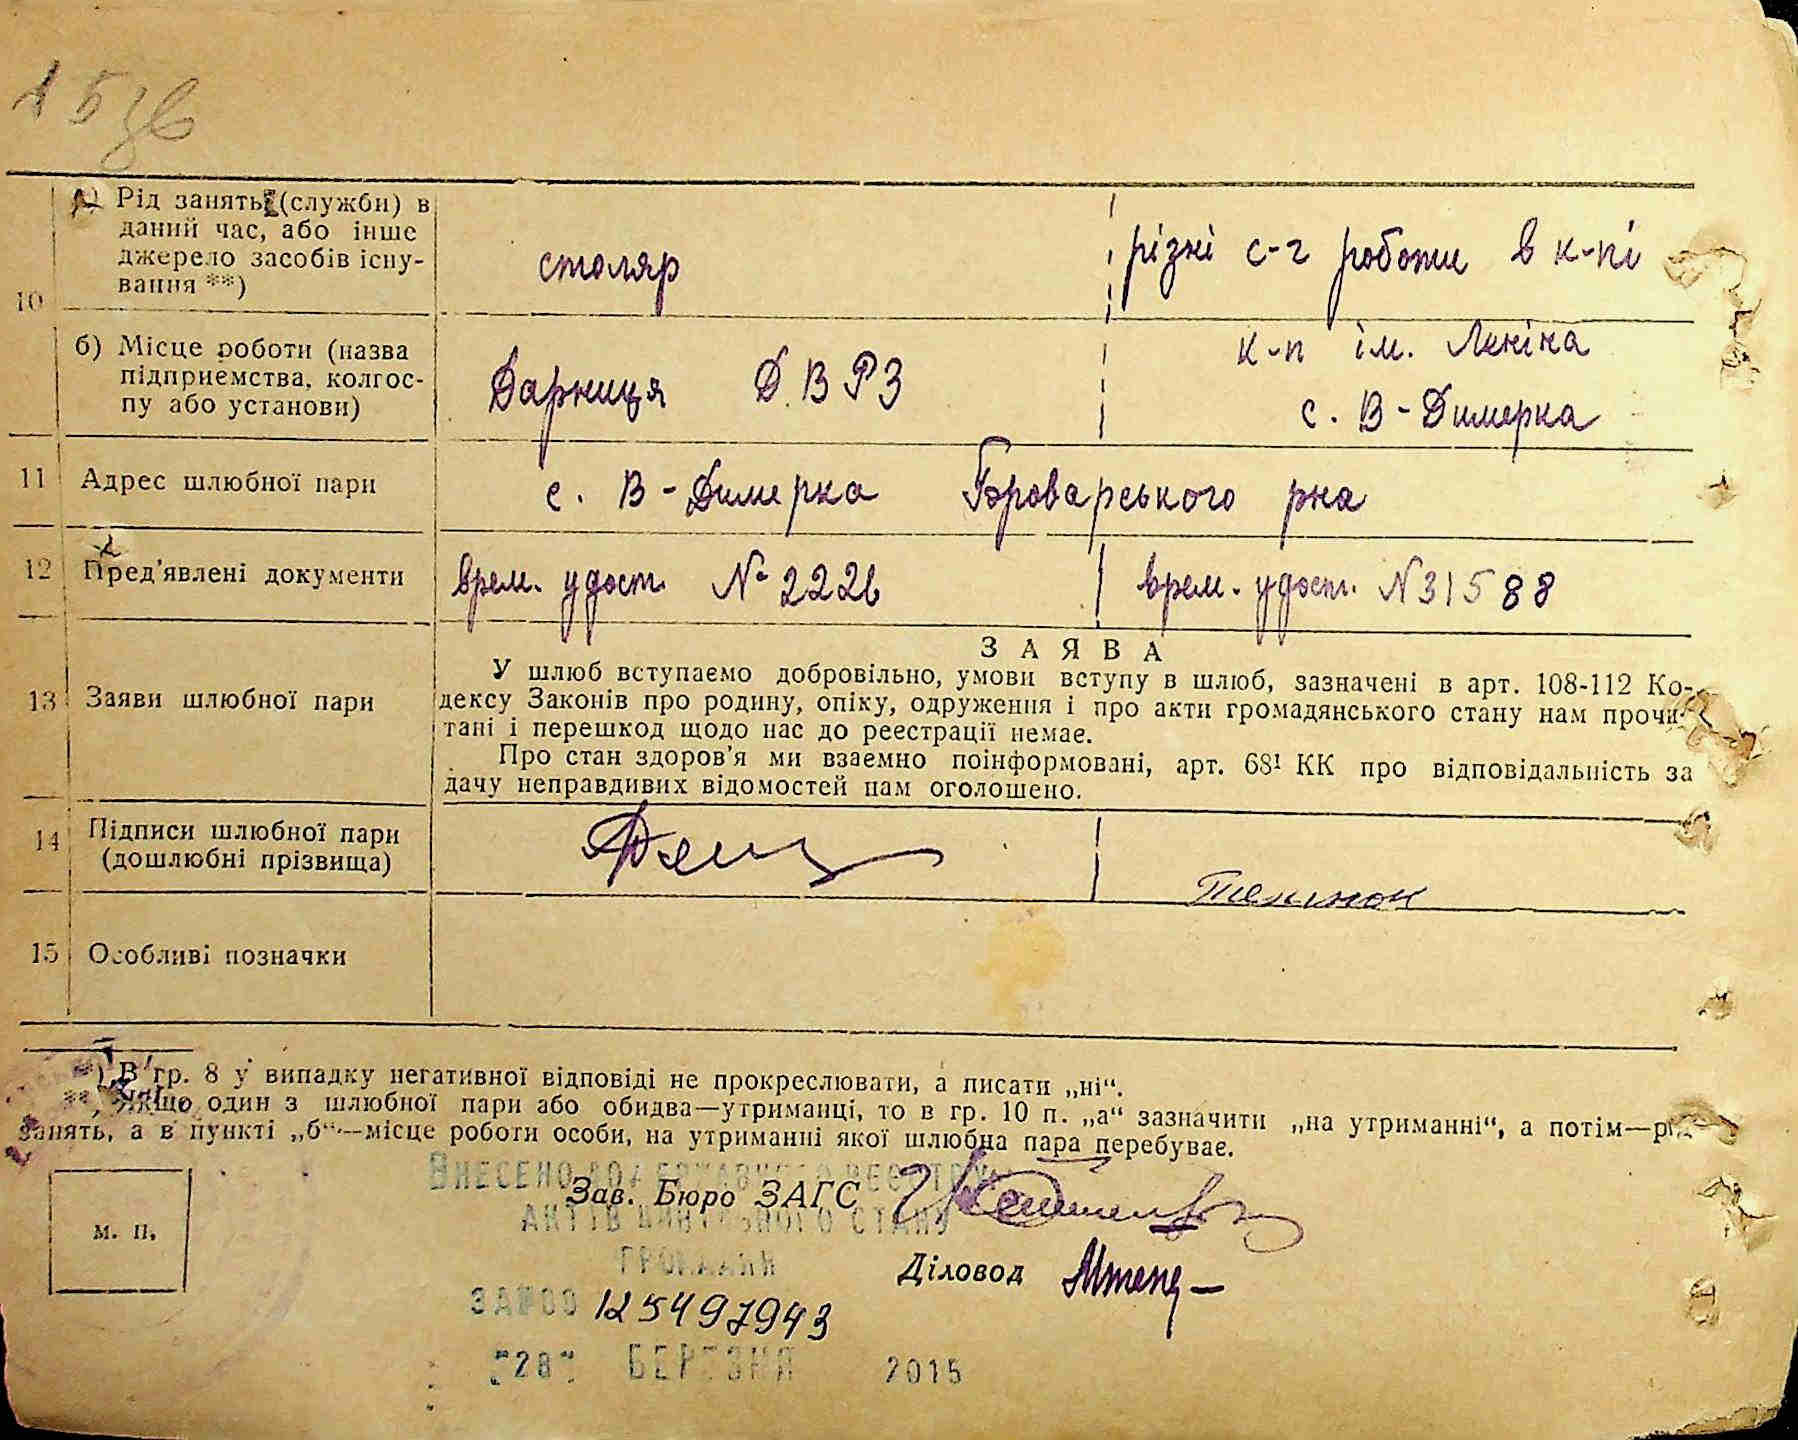 15зв
а) Рід занять (служби) в
даний час, або інше
джерело засобів існу-
вання **)
10
столяр
різні с-г роботи в к-пі
б) Місце роботи (назва
підприємства, колгос-
пу або установи)
Дарниця ДВРЗ
к-п ім. Леніна
с. В-Димерка
11 Адрес шлюбної пари
с. В-Димерка Броварського рна
12 Пред'явлені документи
врем. удост. № 2226
врем. удост. N 31588
ЗАЯВА
13 Заяви шлюбної пари
У шлюб вступаємо добровільно, умови вступу в шлюб, зазначені в арт. 108-112 Ко-
дексу Законів про родину, опіку, одруження і про акти громадянського стану нам прочи-
тані і перешкод щодо нас до реестрації немає.
Про стан здоров'я ми взаємно поінформовані, арт. 68¹ КК про відповідальність за
дачу неправдивих відомостей нам оголошено.
14 Підписи шлюбної пари
(дошлюбні прізвища)
15 Особливі позначки
*) В гр. 8 у випадку негативної відповіді не прокреслювати, а писати „ні“.
**) Якщо один з шлюбної пари або обидва—утриманці, то в гр. 10 п. „а“ зазначити „на утриманні“, а потім—рід
занять, а в пункті „б“—місце роботи особи, на утриманні якої шлюбна пара перебуває.
ВНЕСЕНО ДО ДЕРЖАВНОГО РЕЄСТРУ
Зав. Бюро ЗАГС
АКТІВ ЦИВІЛЬНОГО СТАНУ
м. п.
ГРОМАДЯН
Діловод
ЗА № 00125497943
"28" БЕРЕЗНЯ 2015